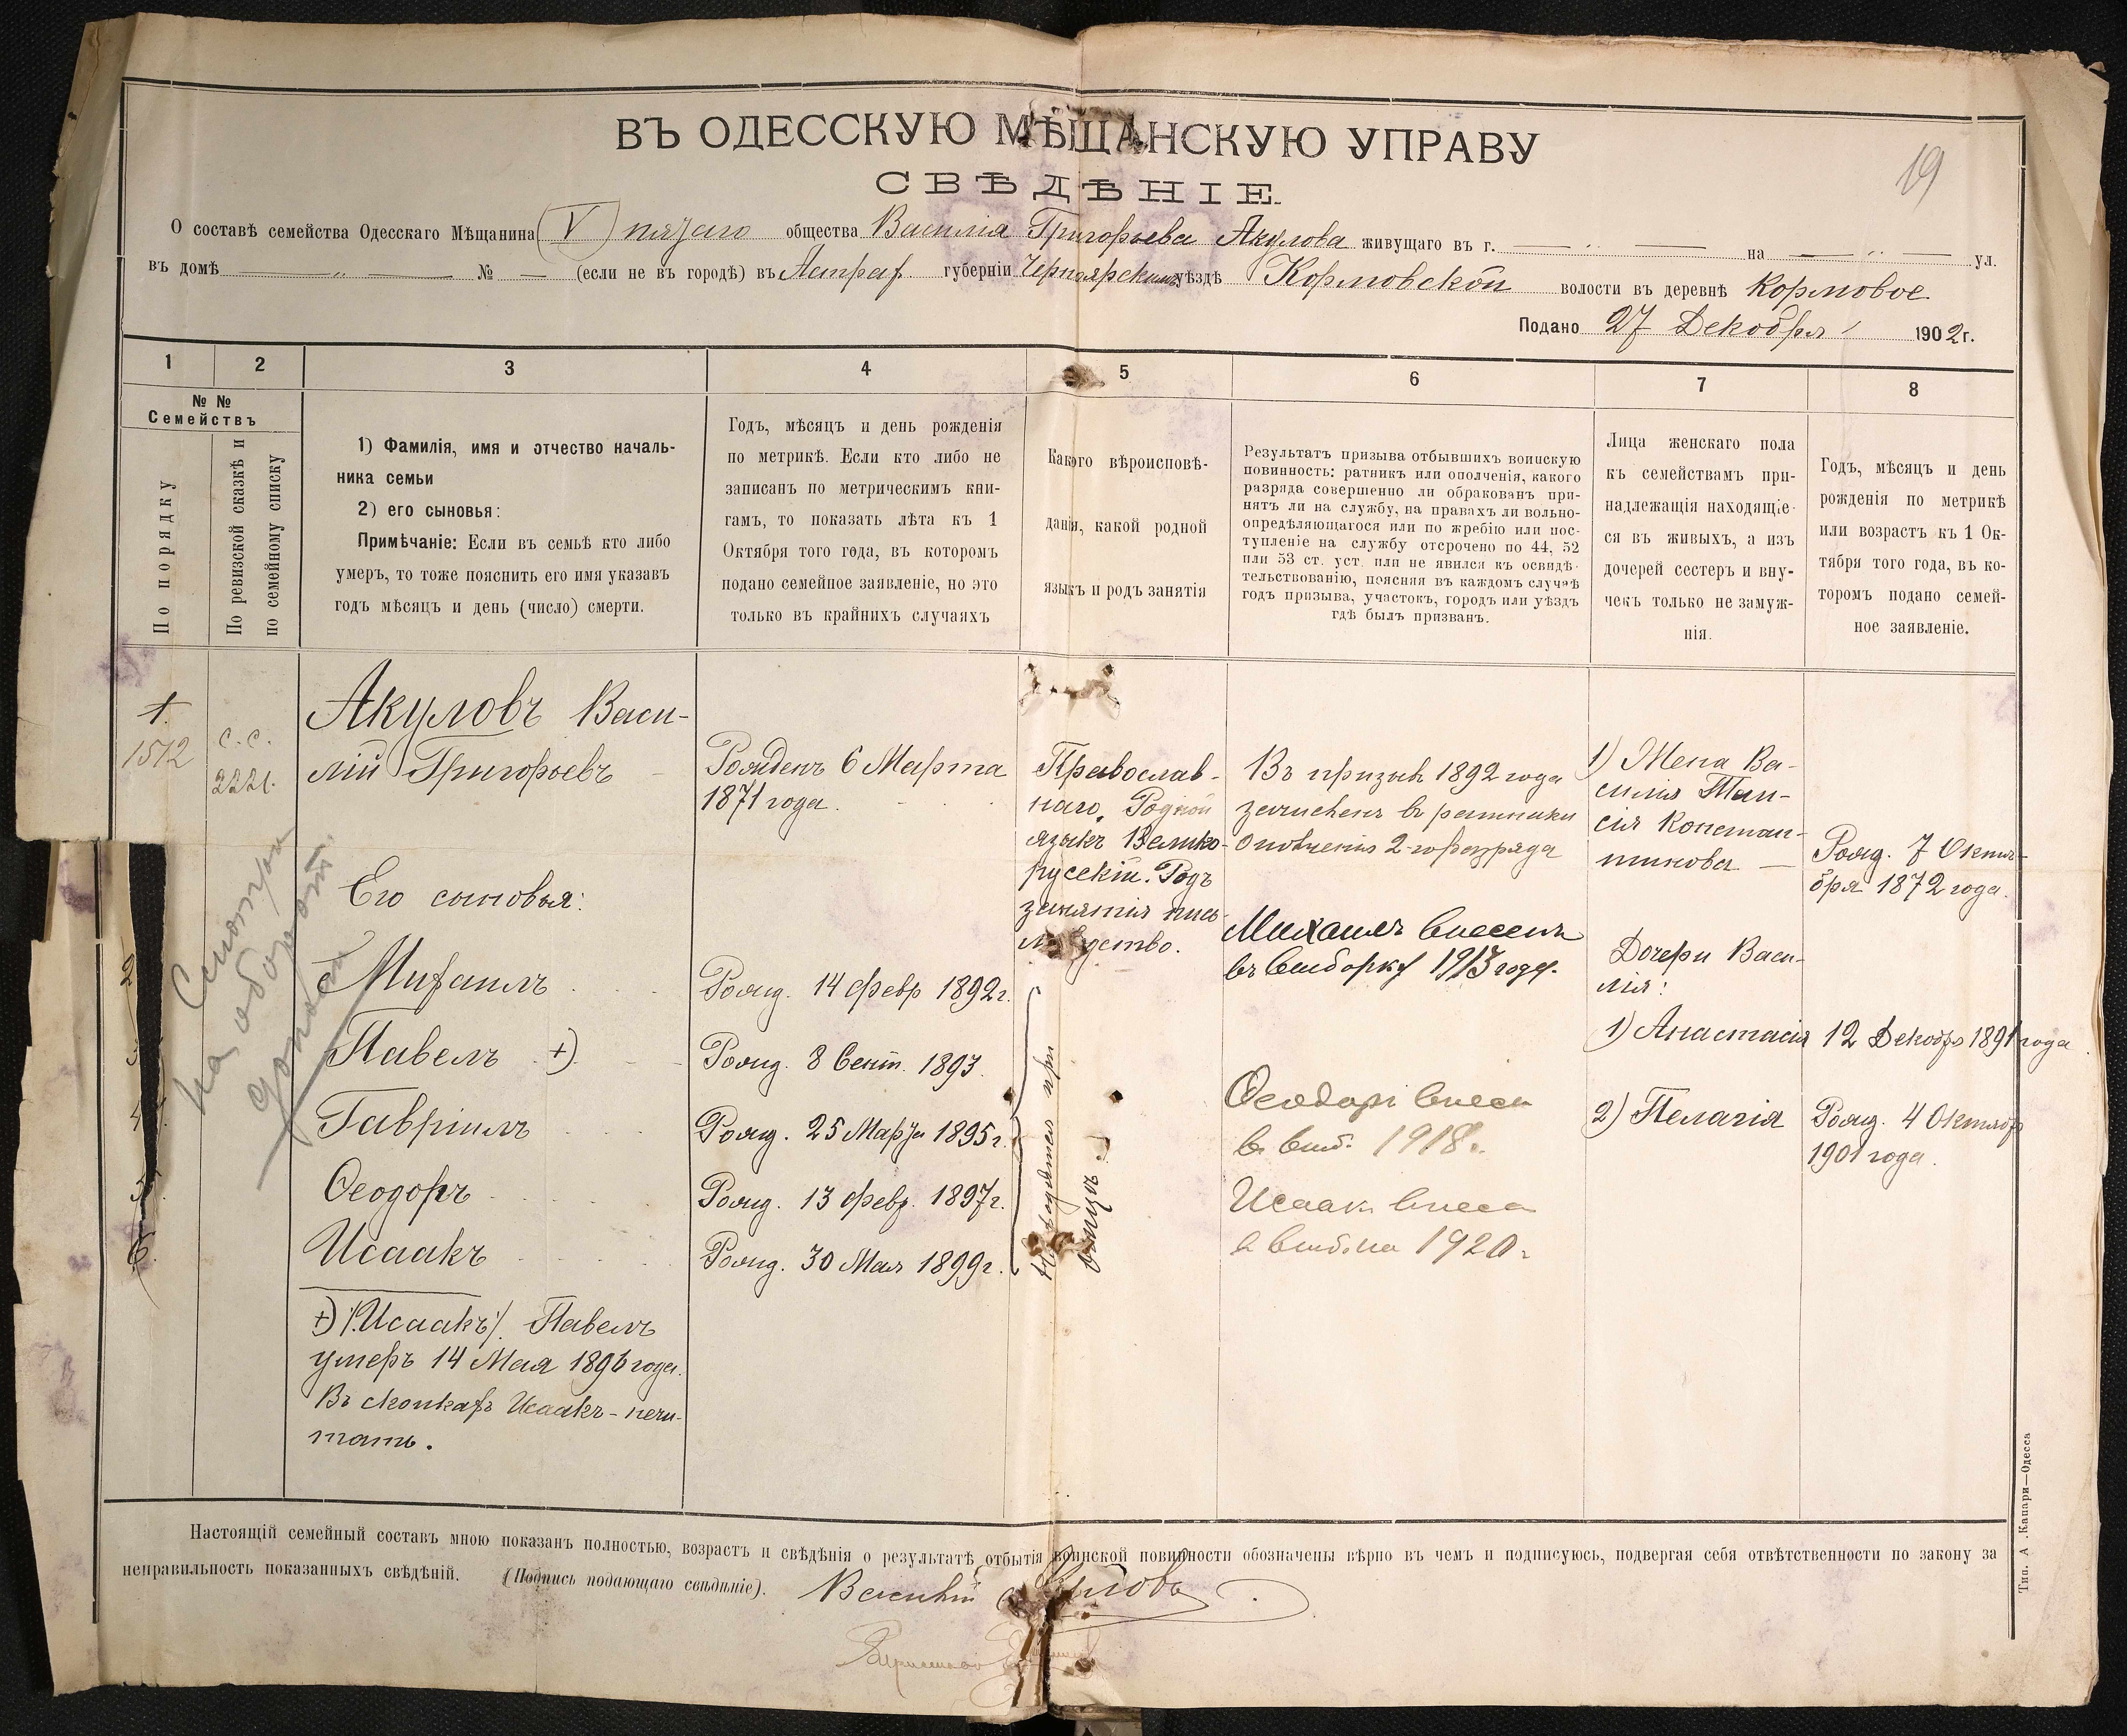 ВЪ ОДЕССКУЮ МѢЩАНСКУЮ УПРАВУ
СВѢДѢНІЕ.
19
О составѣ семейства Одесскаго Мѣщанина (V) пятаго общества Василія Григорьева Акулова живущаго въ г. — „ — на — „ — ул.
въ домѣ — „ — № — (если не въ городѣ) въ Астрах губерніи Черноярскомъ уѣздѣ Кормовской волости въ деревнѣ Кормовое
Подано 27 Декабря 1902 г.
1 2 3 4 5 6 7 8
№ №
Семействъ
По порядку
По ревизской сказкѣ и
по семейному списку
1) Фамилія, имя и отчество началь-
ника семьи
2) его сыновья:
Примѣчаніе: Если въ семьѣ кто либо
умеръ, то тоже пояснить его имя указавъ
годъ мѣсяцъ и день (число) смерти.
Годъ, мѣсяцъ и день рожденія
по метрикѣ. Если кто либо не
записанъ по метрическимъ кни-
гамъ, то показать лѣта къ 1
Октября того года, въ которомъ
подано семейное заявленіе, но это
только въ крайнихъ случаяхъ
Какого вѣроисповѣ-
данія, какой родной
языкъ и родъ занятія
Результатъ призыва отбывшихъ воинскую
повинность: ратникъ или ополченія, какого
разряда совершенно ли обракованъ при-
нятъ ли на службу, на правахъ ли вольно-
опредѣляющагося или по жребію или пос-
тупленіе на службу отсрочено по 44, 52
или 53 ст. уст. или не явился къ освидѣ-
тельствованію, поясняя въ каждомъ случаѣ
годъ призыва, участокъ, городъ или уѣздъ
гдѣ былъ призванъ.
Лица женскаго пола
къ семействамъ при-
надлежащія находящіе-
ся въ живыхъ, а изъ
дочерей сестеръ и вну-
чекъ только не замуж-
нія.
Годъ, мѣсяцъ и день
рожденія по метрикѣ
или возрастъ къ 1 Ок-
тября того года, въ ко-
торомъ подано семей-
ное заявленіе.
1.
1512
с. с.
2221.
Акуловъ Васи-
лій Григорьевъ
Рожденъ 6 Марта
1871 года.
Православ-
наго. Родной
языкъ Велико-
русскій. Родъ
занятія письмо-
водство.
Въ призывъ 1892 года
зачисленъ въ ратники
ополченія 2-го разряда
1) Жена Ва-
силія Таи-
сія Констан-
тинова —
Рожд. 7 Октя-
бря 1872 года.
Смотри
на оборотѣ
Его сыновья:
2
Михаилъ
Рожд. 14 февр 1892 г.
Михаилъ внесенъ
въ выборку 1913 года.
Дочери Васи-
лія:
3
Павелъ +)
Рожд. 8 Сент. 1893.
1) Анастасія
12 Декабр 1891 года
4.
Гавріилъ
Рожд. 25 Марта 1895 г.
Ѳеодоръ внесен
въ выб. 1918 г.
2) Пелагія
Рожд. 4 Октябр
1901 года.
5.
Ѳеодоръ
Рожд. 13 февр. 1897 г.
Исаакъ внесен
в выб. на 1920 г.
6.
Исаакъ
Рожд. 30 Мая 1899 г.
Находятся при
отцѣ.
+) /.Исаакъ/. Павелъ
умеръ 14 Мая 1896 года.
Въ скобкахъ Исаакъ - не чи-
тать.
Настоящій семейный составъ мною показанъ полностью, возрастъ и свѣдѣнія о результатѣ отбытія воинской повинности обозначены вѣрно въ чемъ и подписуюсь, подвергая себя отвѣтственности по закону за
неправильность показанныхъ свѣдѣній. (Подпись подающаго свѣдѣніе). Василій Акуловъ
Тип. А. Капари—Одесса